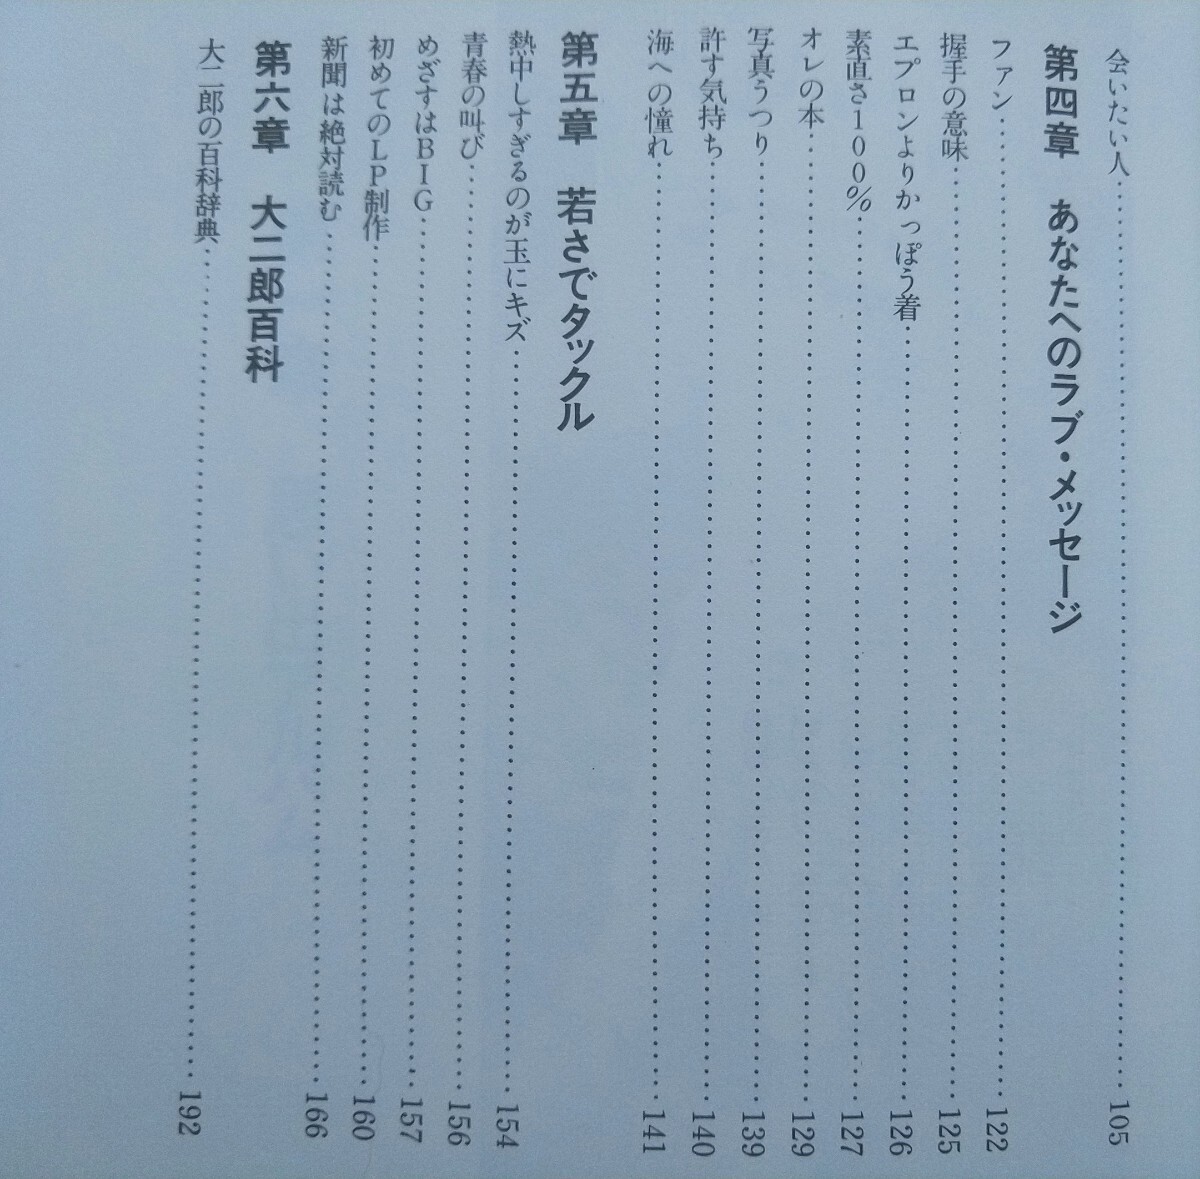 会いたい人……………………105
第四章　あなたへのラブ・メッセージ
ファン……………………122
握手の意味……………………125
エプロンよりかっぽう着……………………126
素直さ100%……………………127
オレの本……………………129
写真うつり……………………139
許す気持ち……………………140
海への憧れ……………………141
第五章　若さでタックル
熱中しすぎるのが玉にキズ……………………154
青春の叫び……………………156
めざすはBIG……………………157
初めてのLP制作……………………160
新聞は絶対読む……………………166
第六章　大二郎百科
大二郎の百科辞典……………………192